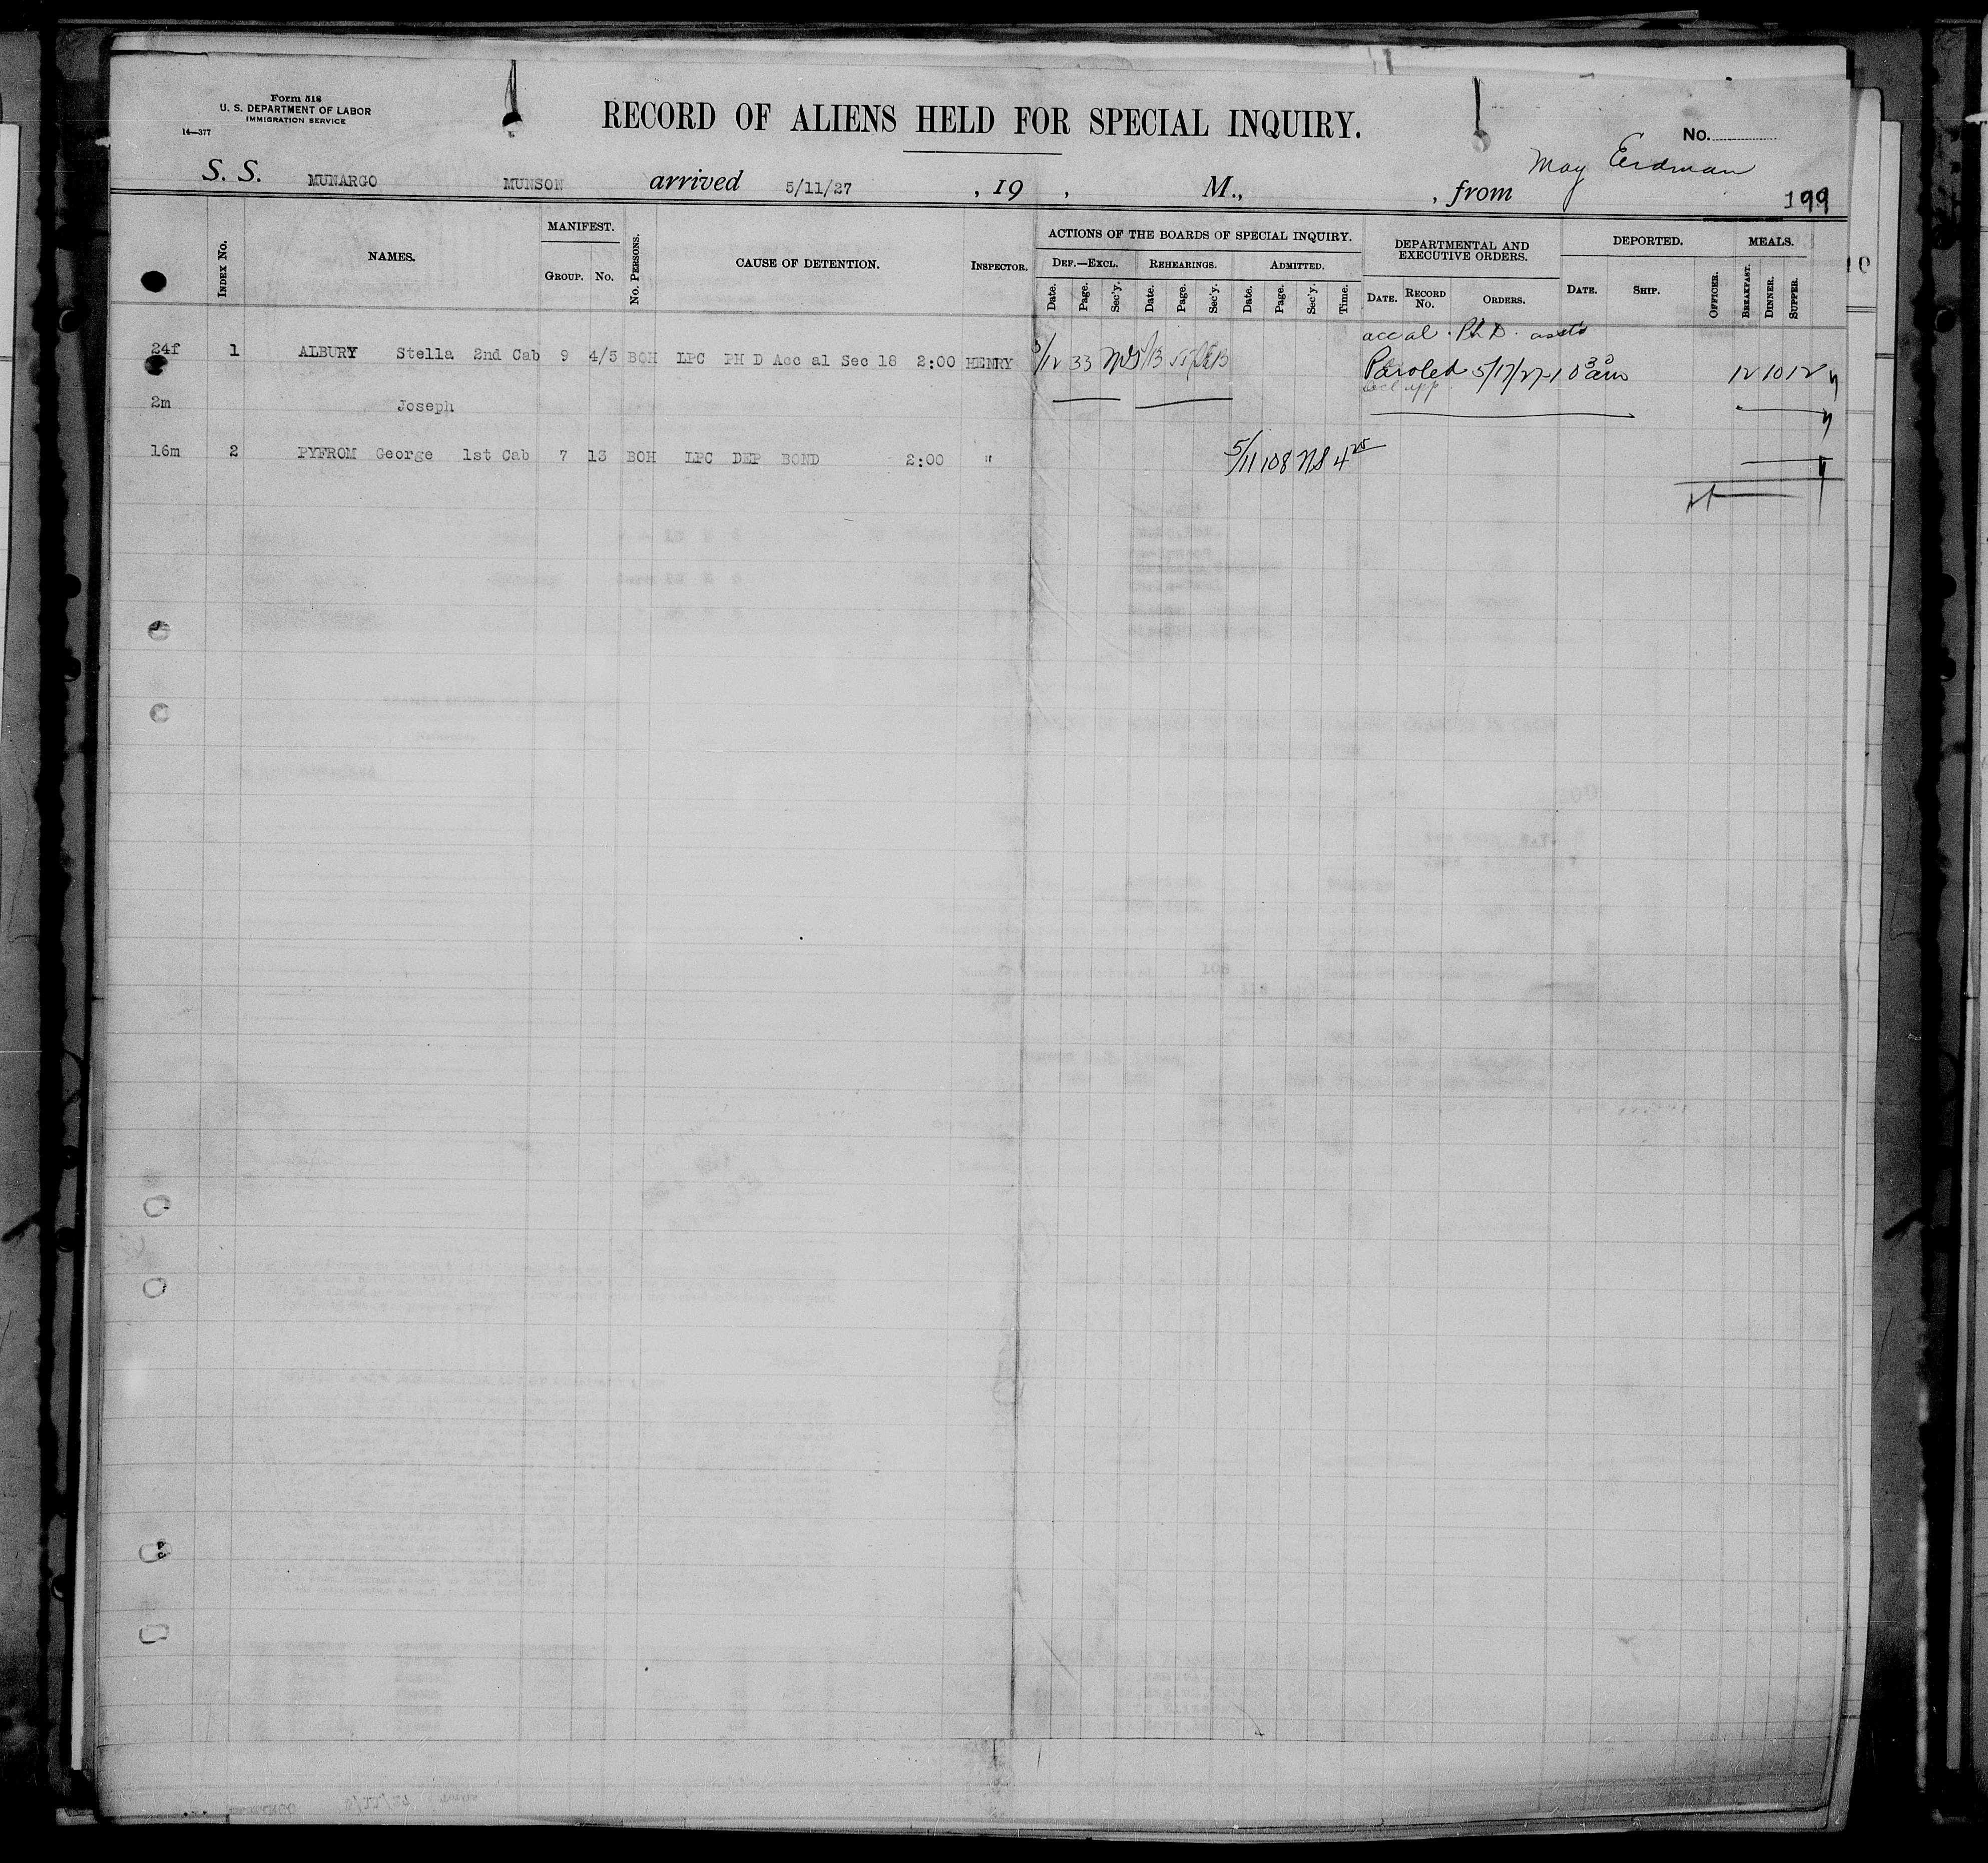 Form 518
U. S. DEPARTMENT OF LABOR
IMMIGRATION SERVICE
14—377
RECORD OF ALIENS HELD FOR SPECIAL INQUIRY.
No.
May Erdman
S. S. MUNARGO MUNSON arrived 5/11/27 , 19 , M., , from
199
INDEX No. NAMES. MANIFEST. GROUP. No. No. PERSONS. CAUSE OF DETENTION. INSPECTOR.
ACTIONS OF THE BOARDS OF SPECIAL INQUIRY. DEPARTMENTAL AND EXECUTIVE ORDERS. DEPORTED. MEALS.
DEF.—EXCL. REHEARINGS. ADMITTED.
Date. Page. Sec'y. Date. Page. Sec'y. Date. Page. Sec'y. Time. DATE. RECORD No. ORDERS. DATE. SHIP. OFFICER. BREAKFAST. DINNER. SUPPER.
acc al. Ph D.
24f 1 ALBURY Stella 2nd Cab 9 4/5 BOH LPC PH D Acc al Sec 18 2:00 HENRY 5/12 33
Paroled 5/17/27-10 30 am 12 10 12
2m Joseph
16m 2 PYFROM George 1st Cab 7 13 BOH LPC DEP BOND 2:00 " 5/11 108 NS 4 25